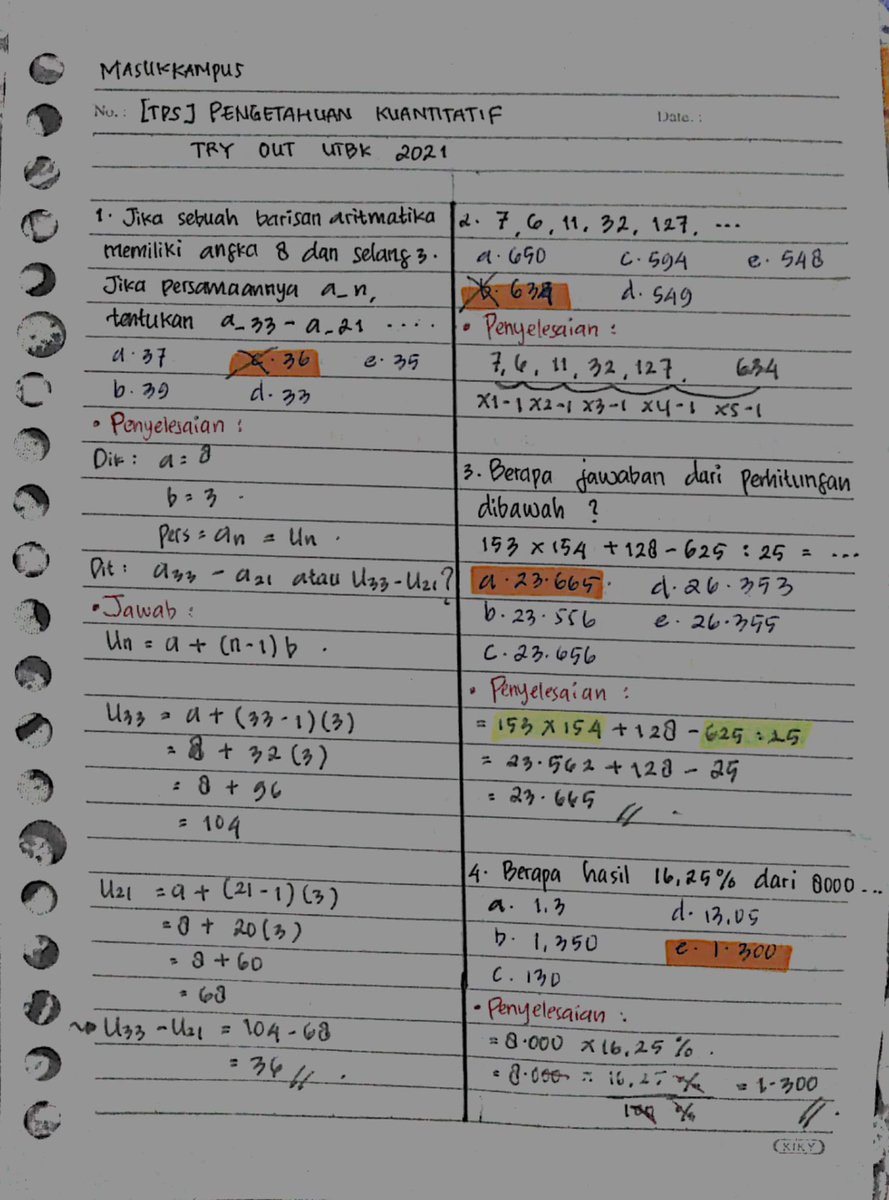 MASUKKAMPUS
No. : [TPS] PENGETAHUAN KUANTITATIF Date. :
TRY OUT UTBK 2021
1. Jika sebuah barisan aritmatika
memiliki angka 8 dan selang 3.
Jika persamaannya a_n,
tentukan a_33 - a_21 ....
a. 37 c. 36 e. 35
b. 39 d. 33
• Penyelesaian :
Dik : a = 8
b = 3 .
Pers = an = Un .
Dit : a33 - a21 atau U33 - U21 ?
• Jawab :
Un = a + (n-1) b .
U33 = a + (33-1) (3)
= 8 + 32 (3)
= 8 + 96
= 104
U21 = a + (21-1) (3)
= 8 + 20 (3)
= 8 + 60
= 68
U33 - U21 = 104 - 68
= 36 // .
2. 7, 6, 11, 32, 127, ...
a. 650 c. 594 e. 548
b. 634 d. 549
• Penyelesaian :
7, 6, 11, 32, 127, 634
x1-1 x2-1 x3-1 x4-1 x5-1
3. Berapa jawaban dari perhitungan
dibawah ?
153 x 154 + 128 - 625 : 25 = ...
a. 23.665 . d. 26.353
b. 23.556 e. 26.355
c. 23.656
• Penyelesaian :
= 153 x 154 + 128 - 625 : 25
= 23.562 + 128 - 25
= 23.665 // .
4. Berapa hasil 16,25% dari 8000 ...
a. 1.3 d. 13,05
b. 1,350 e. 1.300
c. 130
• Penyelesaian :
= 8.000 x 16,25 % .
= 8.000 = 16,25 % = 1.300
100 % // .
KIKY